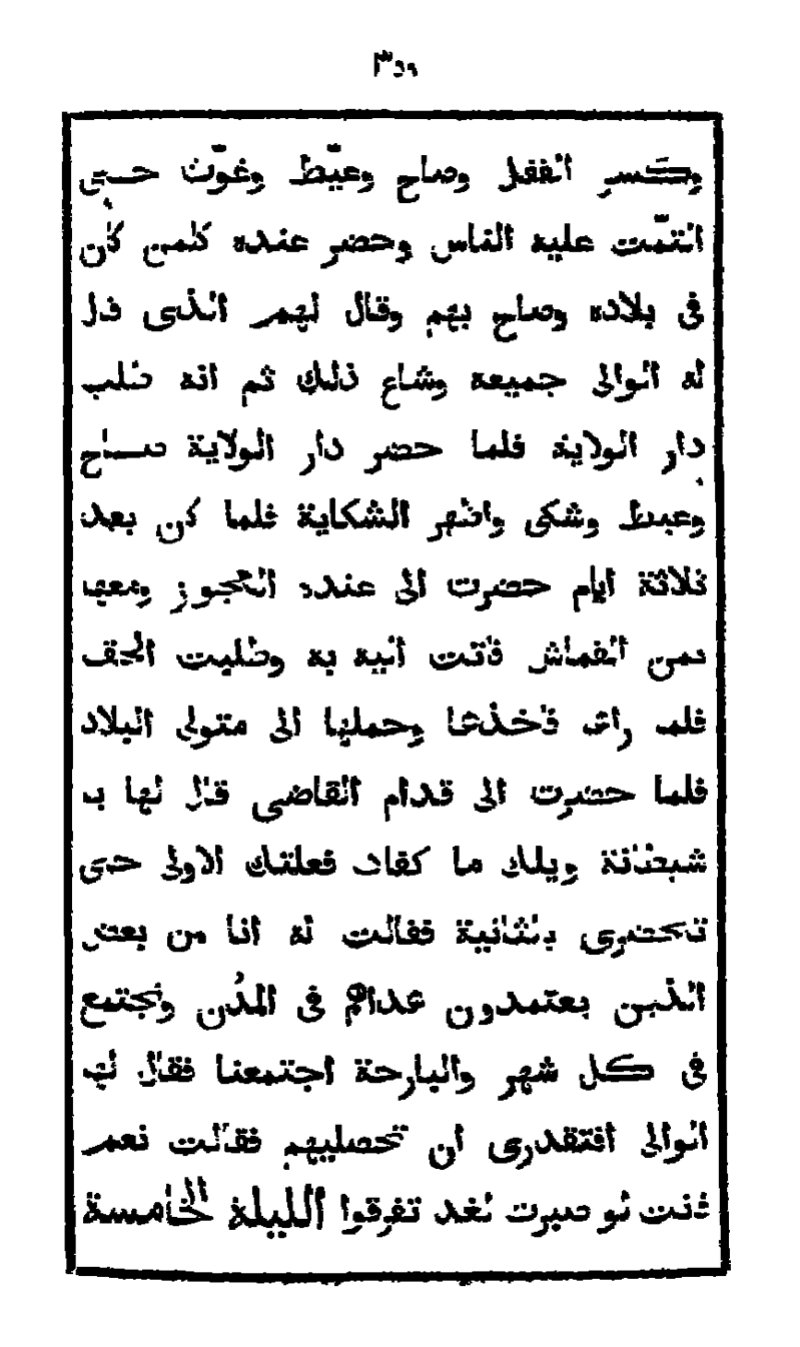 ٣٥٩
وكسر القفل وصاح وعيّط وغوّث حتى
التمّت عليه الناس وحضر عنده كلمن كان
فى بلاده وصاح بهم وقال لهم الذى قال
له الوالى جميعه وشاع ذلك ثم انه طلب
دار الولاية فلما حضر دار الولاية صاح
وعيط وشكى واظهر الشكاية فلما كان بعد
ثلاثة ايام حضرت الى عنده العجوز ومعها
ثمن القماش فاتت اليه به وطلبت الحق
فلما راها فاخذها وحملها الى متولى البلاد
فلما حضرت الى قدام القاضى قال لها يا
شيطانة ويلك ما كفاك فعلتك الاولى حتى
تحضرى بالثانية فقالت له انا من بعض
الذين يعتمدون عداهم فى المدُن ونجتمع
فى كل شهر والبارحة اجتمعنا فقال لها
الوالى افتقدرى ان تحصليهم فقالت نعم
قالت لو صبرت لغد تفرقوا الليلة الخامسة